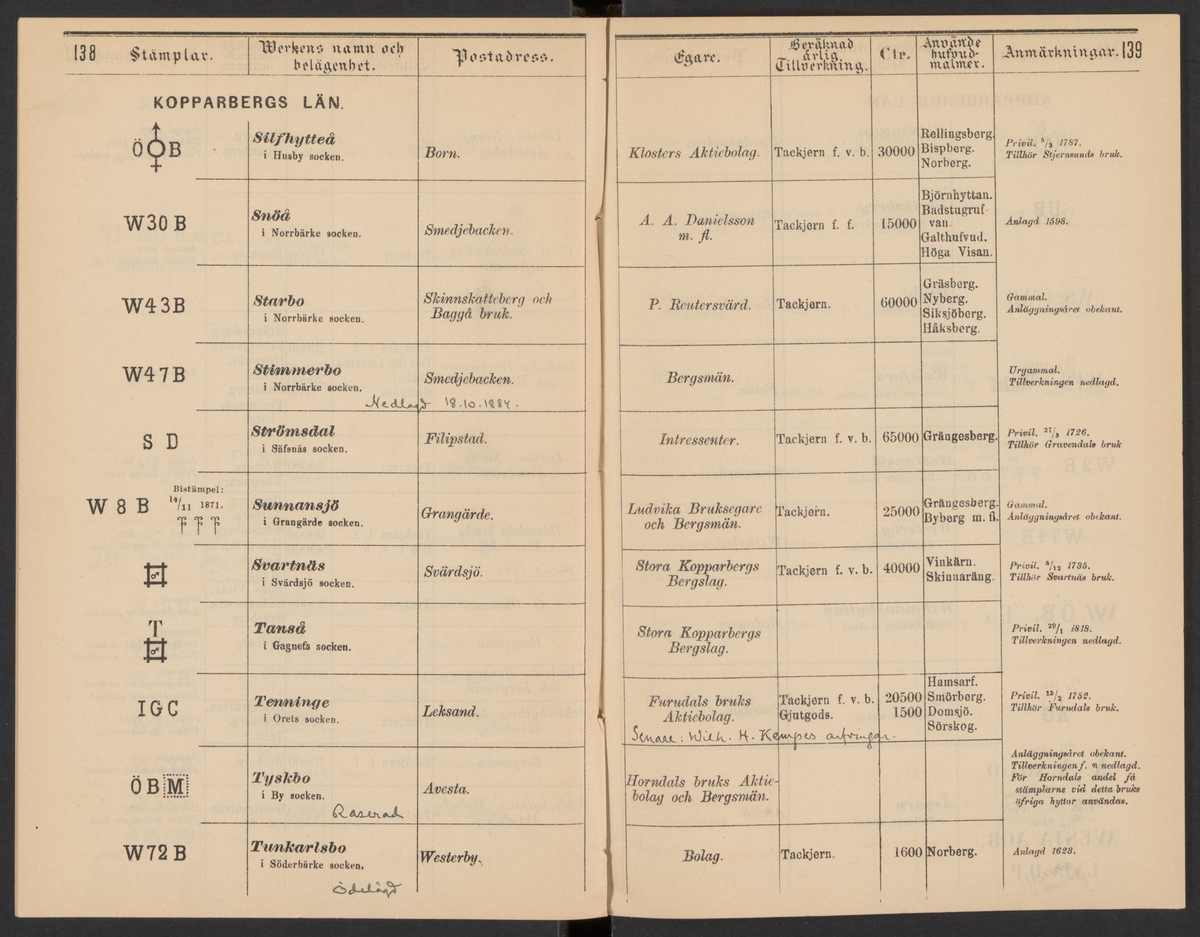 138 Stämplar. Werkens namn och belägenhet. Postadress. Egare. Beräknad årlig Tillverkning. Ctr. Använde hufvud-malmer. Anmärkningar. 139
KOPPARBERGS LÄN.
Ö B
Silfhytteå
i Husby socken.
Born.
Klosters Aktiebolag.
Tackjern f. v. b.
30000
Rellingsberg.
Bispberg.
Norberg.
Privil. 5/3 1787.
Tillhör Stjernsunds bruk.
W30 B
Snöå
i Norrbärke socken.
Smedjebacken.
A. A. Danielsson
m. fl.
Tackjern f. f.
15000
Björnhyttan.
Badstugruf-
van.
Galthufvud.
Höga Visan.
Anlagd 1598.
W43B
Starbo
i Norrbärke socken.
Skinnskatteberg och
Baggå bruk.
P. Reutersvärd.
Tackjern.
60000
Gräsberg.
Nyberg.
Siksjöberg.
Håksberg.
Gammal.
Anläggningsåret obekant.
W47B
Stimmerbo
i Norrbärke socken.
Nedlagd 18.10.1884.
Smedjebacken.
Bergsmän.
Urgammal.
Tillverkningen nedlagd.
S D
Strömsdal
i Säfsnäs socken.
Filipstad.
Intressenter.
Tackjern f. v. b.
65000
Grängesberg.
Privil. 27/8 1726.
Tillhör Gravendals bruk
W 8 B
Bistämpel:
14/11 1871.
Sunnansjö
i Grangärde socken.
Grangärde.
Ludvika Bruksegare
och Bergsmän.
Tackjern.
25000
Grängesberg.
Byberg m. fl.
Gammal.
Anläggningsåret obekant.
Svartnäs
i Svärdsjö socken.
Svärdsjö.
Stora Kopparbergs
Bergslag.
Tackjern f. v. b.
40000
Vinkärn.
Skinnaräng.
Privil. 5/12 1735.
Tillhör Svartnäs bruk.
T
Tanså
i Gagnefs socken.
Stora Kopparbergs
Bergslag.
Privil. 29/1 1818.
Tillverkningen nedlagd.
IGC
Tenninge
i Orets socken.
Leksand.
Furudals bruks
Aktiebolag.
Senare: Wilh. H. Kempes arfvingar.
Tackjern f. v. b.
Gjutgods.
20500
1500
Hamsarf.
Smörberg.
Domsjö.
Sörskog.
Privil. 13/2 1752.
Tillhör Furudals bruk.
ÖB M
Tyskbo
i By socken.
Raserad
Avesta.
Horndals bruks Aktie-
bolag och Bergsmän.
Anläggningsåret obekant.
Tillverkningen f. n nedlagd.
För Horndals andel få
stämplarne vid detta bruks
öfriga hyttor användas.
W72 B
Tunkarlsbo
i Söderbärke socken.
Ödelagd
Westerby.
Bolag.
Tackjern.
1600
Norberg.
Anlagd 1623.